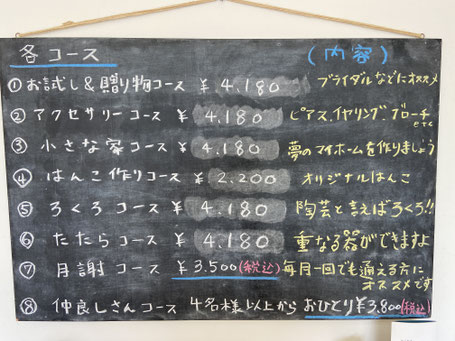 各コース (内容)
①お試し&贈り物コース ¥4.180 ブライダルなどにオススメ
②アクセサリーコース ¥4.180 ピアス、イヤリング、ブローチetc
③小さな家コース ¥4.180 夢のマイホームを作りましょう
④はんこ作りコース ¥2.200 オリジナルはんこ
⑤ろくろコース ¥4.180 陶芸と言えばろくろ!!
⑥たたらコース ¥4.180 重なる器ができますよ
⑦月謝コース ¥3.500(税込)毎月一回でも通える方にオススメです
⑧仲良しさんコース 4名様以上からおひとり¥3.800(税込)